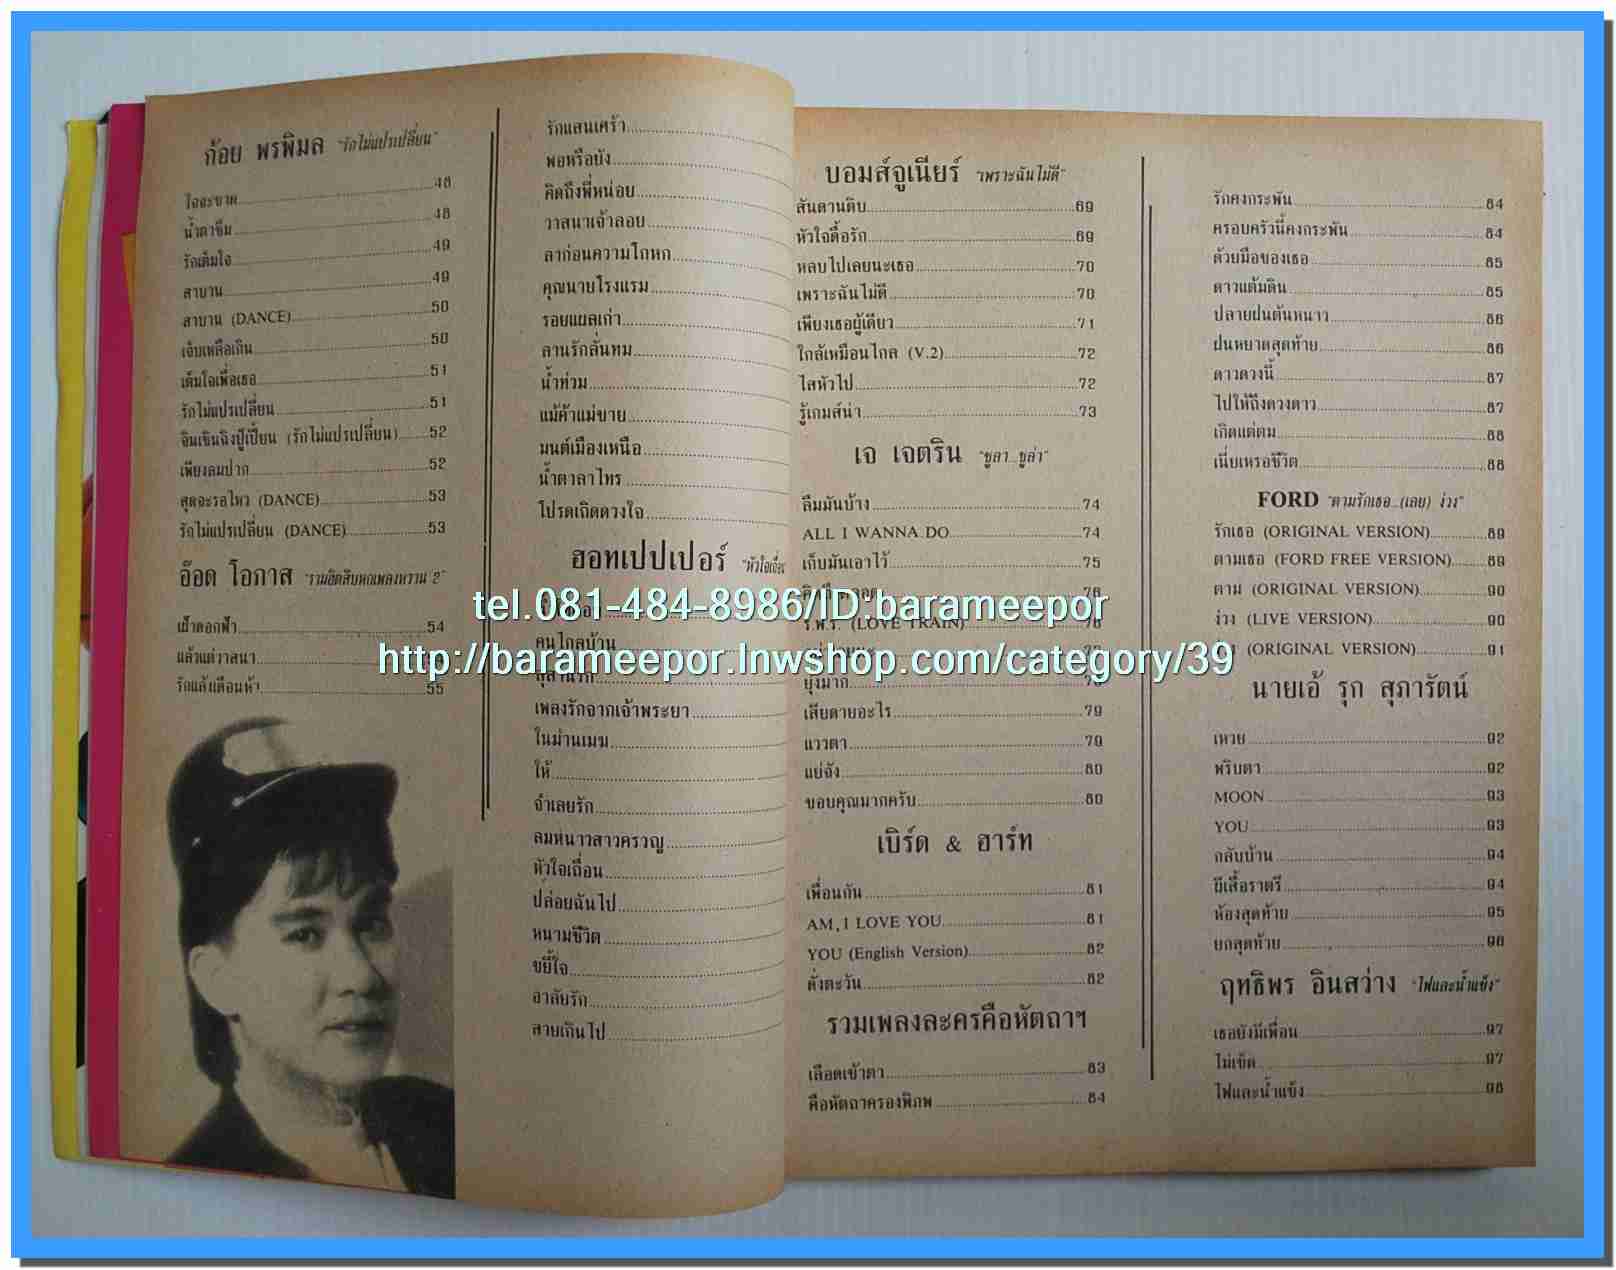 ก้อย พรพิมล "รักไม่แปรเปลี่ยน"
ใจจะขาด 48
น้ำตาซึม 48
รักเต็มใจ 49
สาบาน 49
สาบาน (DANCE) 50
เจ็บเหลือเกิน 50
เต็มใจเพื่อเธอ 51
รักไม่แปรเปลี่ยน 51
จินเซินฉิงปู้เปี้ยน (รักไม่แปรเปลี่ยน) 52
เพียงลมปาก 52
สุดจะรอไหว (DANCE) 53
รักไม่แปรเปลี่ยน (DANCE) 53
อ๊อด โอภาส "รวมฮิตสิบหกเพลงหวาน 2"
เม้ดอกฟ้า 54
แล้วแต่วาสนา
รักแล้งเดือนห้า 55
รักแสนเศร้า
พอหรือยัง
คิดถึงพี่หน่อย
วาสนาเจ้าลอย
ลาก่อนความโกหก
คุณนายโรงแรม
รอยแผลเก่า
ลานรักลั่นทม
น้ำท่วม
แม่ค้าแม่ขาย
มนต์เมืองเหนือ
น้ำตาลาไทร
โปรดเถิดดวงใจ
ฮอทเปปเปอร์ "หัวใจเถื่อน
คนไกลบ้าน
สุสานรัก
เพลงรักจากเจ้าพระยา
ในม่านเมฆ
ให้
จำเลยรัก
ลมหนาวสาวครวญ
หัวใจเถื่อน
ปล่อยฉันไป
หนามชีวิต
ขยี้ใจ
อาลัยรัก
สายเกินไป
บอมส์จูเนียร์ "เพราะฉันไม่ดี"
สันดานดิบ 69
หัวใจดื้อรัก 69
หลบไปเลยนะเธอ 70
เพราะฉันไม่ดี 70
เพียงเธอผู้เดียว 71
ใกล้เหมือนไกล (V.2) 72
ไสหัวไป 72
รู้เกมส์น่า 73
เจ เจตริน "ชูลา...ชูล่า"
ลืมมันบ้าง 74
ALL I WANNA DO 74
เก็บมันเอาไว้ 75
76
ร.พ.ร. (LOVE TRAIN) 76
ยุ่งมาก
เสียดายอะไร 79
แววตา 79
แย่จัง 80
ขอบคุณมากครับ 80
เบิร์ด & ฮาร์ท
เพื่อนกัน 81
AM, I LOVE YOU 81
YOU (English Version) 82
ดั่งตะวัน 82
รวมเพลงละครคือหัตถาฯ
เลือดเข้าตา 83
คือหัตถาครองพิภพ 84
รักคงกระพัน 84
ครอบครัวนี้คงกระพัน 84
ด้วยมือของเธอ 85
ดาวแต้มดิน 85
ปลายฝนต้นหนาว 86
ฝนหยาดสุดท้าย 86
ดาวดวงนี้ 87
ไปให้ถึงดวงดาว 87
เกิดแต่ตม 88
เนี่ยเหรอชีวิต 88
FORD "ตามรักเธอ...(เลย) ง่วง"
รักเธอ (ORIGINAL VERSION) 89
ตามเธอ (FORD FREE VERSION) 89
ตาม (ORIGINAL VERSION) 90
ง่วง (LIVE VERSION) 90
(ORIGINAL VERSION) 91
นายเอ้ รุก สุภารัตน์
เหวย 92
พริบตา 92
MOON 93
YOU 93
กลับบ้าน 94
ผีเสื้อราตรี 94
ห้องสุดท้าย 95
ยกสุดท้าย 96
ฤทธิพร อินสว่าง "ไฟและน้ำแข็ง"
เธอยังมีเพื่อน 97
ไม่เข็ด 97
ไฟและน้ำแข็ง 98
tel.081-484-8986/ID:barameepor
http://barameepor.lnwshop.com/category/39